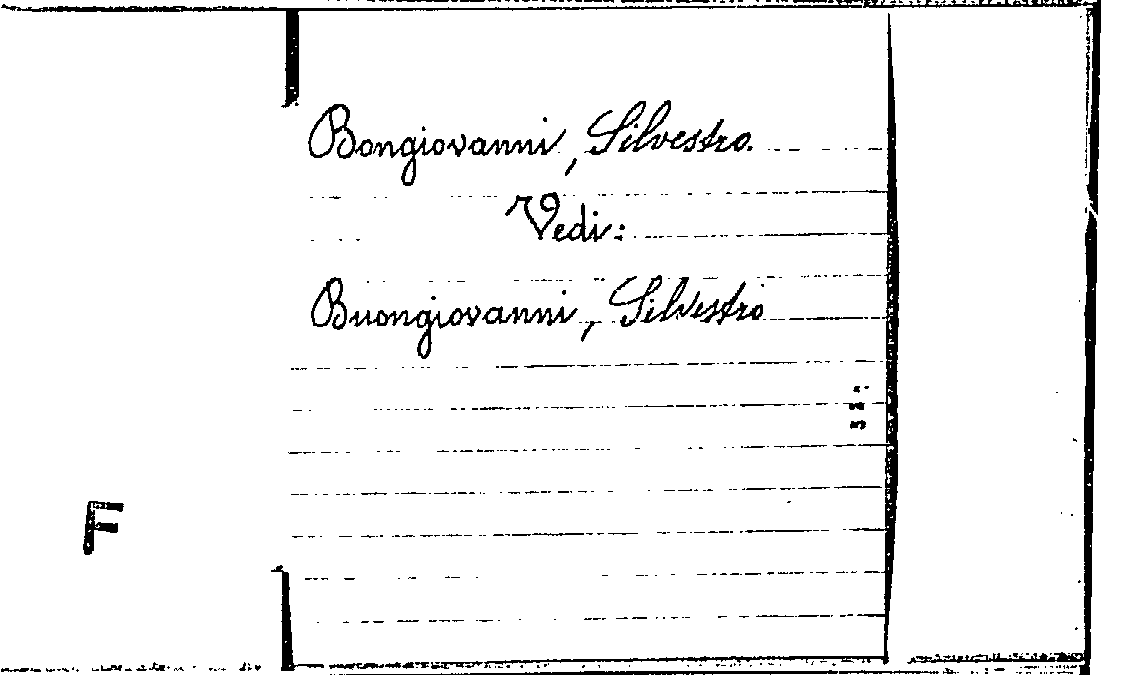 Bongiovanni, Silvestro.
Vedi:
Buongiovanni, Silvestro
F